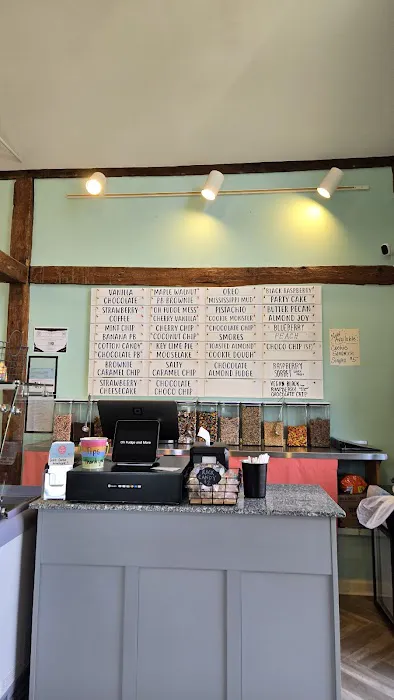 VANILLA
CHOCOLATE
STRAWBERRY
COFFEE
MINT CHIP
BANANA PB
COTTON CANDY
CHOCOLATE PB
BROWNIE
CARAMEL CHIP
STRAWBERRY
CHEESECAKE
"MAPLE WALNUT"
PB BROWNIE
"OH FUDGE MESS"
CHERRY VANILLA
CHERRY CHIP
COCONUT CHIP
KEY LIME PIE
MOOSELAKE
SALTY
CARAMEL CHIP
CHOCOLATE
CHOCO CHIP
OREO
"MISSISSIPPI MUD"
PISTACHIO
COOKIE MONSTER
CHOCOLATE CHIP
SMORES
ROASTED ALMOND
COOKIE DOUGH
CHOCOLATE
ALMOND FUDGE
BLACK RASPBERRY
PARTY CAKE
BUTTER PECAN
ALMOND JOY
BLUEBERRY
PEACH
CHOCO CHIP
RASPBERRY
SORBET
VEGAN
CHOCOLATE CHIP
Oh Fudge and More
Tips